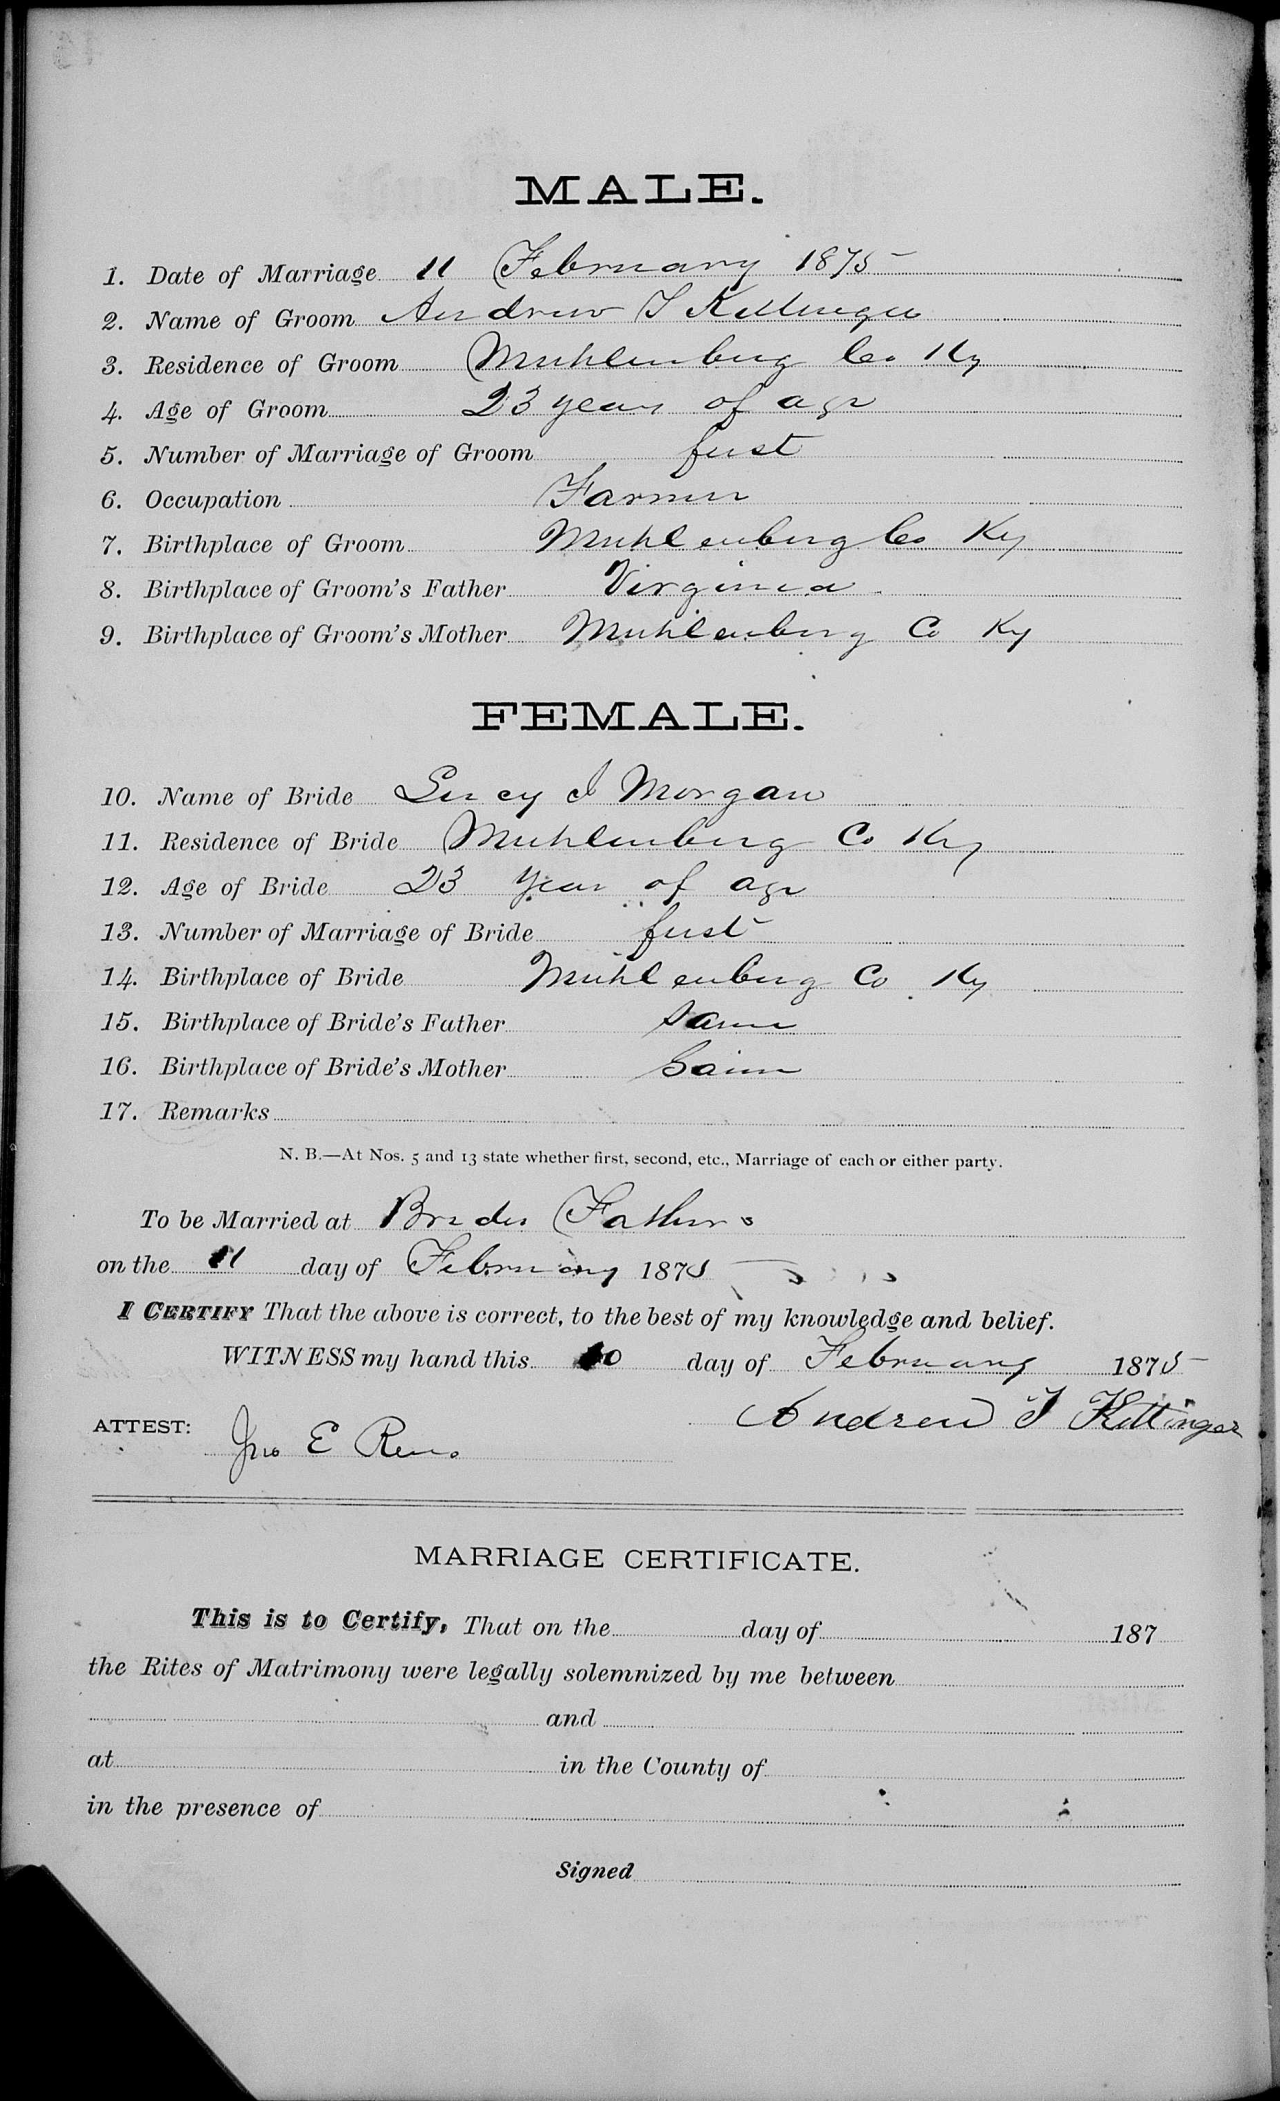 MALE.
1. Date of Marriage 11 February 1875
2. Name of Groom Andrew J Kittinger
3. Residence of Groom Muhlenberg Co Ky
4. Age of Groom 23 years of age
5. Number of Marriage of Groom first
6. Occupation Farmer
7. Birthplace of Groom Muhlenberg Co Ky
8. Birthplace of Groom's Father Virginia
9. Birthplace of Groom's Mother Muhlenberg Co Ky
FEMALE.
10. Name of Bride Lucy J Morgan
11. Residence of Bride Muhlenberg Co Ky
12. Age of Bride 23 year of age
13. Number of Marriage of Bride first
14. Birthplace of Bride Muhlenberg Co Ky
15. Birthplace of Bride's Father Same
16. Birthplace of Bride's Mother Same
17. Remarks
N. B.—At Nos. 5 and 13 state whether first, second, etc., Marriage of each or either party.
To be Married at Brides Fathers
on the 11 day of February 1875
I CERTIFY That the above is correct, to the best of my knowledge and belief.
WITNESS my hand this 10 day of February 1875
Andrew J Kittinger
ATTEST: Jno E Reno
MARRIAGE CERTIFICATE.
This is to Certify, That on the day of 187
the Rites of Matrimony were legally solemnized by me between
and
at in the County of
in the presence of
Signed